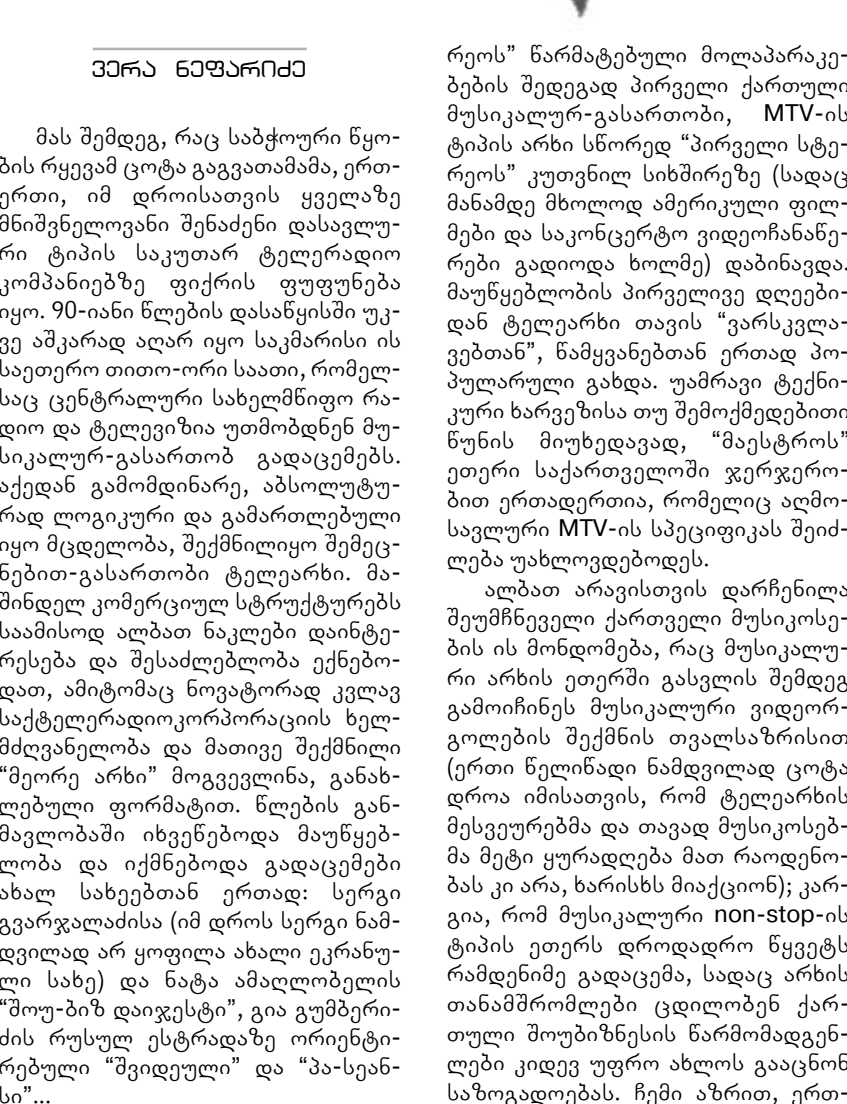 ვერა ნეფარიძე
მას შემდეგ, რაც საბჭოური წყო-
ბის რყევამ ცოტა გაგვათამამა, ერთ-
ერთი, იმ დროისათვის ყველაზე
მნიშვნელოვანი შენაძენი დასავლუ-
რი ტიპის საკუთარ ტელერადიო
კომპანიებზე ფიქრის ფუფუნება
იყო. 90-იანი წლების დასაწყისში უკ-
ვე აშკარად აღარ იყო საკმარისი ის
საეთერო თითო-ორი საათი, რომელ-
საც ცენტრალური სახელმწიფო რა-
დიო და ტელევიზია უთმობდნენ მუ-
სიკალურ-გასართობ გადაცემებს.
აქედან გამომდინარე, აბსოლუტუ-
რად ლოგიკური და გამართლებული
იყო მცდელობა, შექმნილიყო შემეც-
ნებით-გასართობი ტელეარხი. მა-
შინდელ კომერციულ სტრუქტურებს
საამისოდ ალბათ ნაკლები დაინტე-
რესება და შესაძლებლობა ექნებო-
დათ, ამიტომაც ნოვატორად კვლავ
საქტელერადიოკორპორაციის ხელ-
მძღვანელობა და მათივე შექმნილი
“მეორე არხი” მოგვევლინა, განახ-
ლებული ფორმატით. წლების გან-
მავლობაში იხვეწებოდა მაუწყებ-
ლობა და იქმნებოდა გადაცემები
ახალ სახეებთან ერთად: სერგი
გვარჯალაძისა (იმ დროს სერგი ნამ-
დვილად არ ყოფილა ახალი ეკრანუ-
ლი სახე) და ნატა ამაღლობელის
“შოუ-ბიზ დაიჯესტი”, გია გუმბერი-
ძის რუსულ ესტრადაზე ორიენტი-
რებული “შვიდეული” და “პა-სეან-
სი”...
რეოს” წარმატებული მოლაპარაკე-
ბების შედეგად პირველი ქართული
მუსიკალურ-გასართობი, MTV-ის
ტიპის არხი სწორედ “პირველი სტე-
რეოს” კუთვნილ სიხშირეზე (სადაც
მანამდე მხოლოდ ამერიკული ფილ-
მები და საკონცერტო ვიდეოჩანაწე-
რები გადიოდა ხოლმე) დაბინავდა.
მაუწყებლობის პირველივე დღეები-
დან ტელეარხი თავის “ვარსკვლა-
ვებთან”, წამყვანებთან ერთად პო-
პულარული გახდა. უამრავი ტექნი-
კური ხარვეზისა თუ შემოქმედებითი
წუნის მიუხედავად, “მაესტროს”
ეთერი საქართველოში ჯერჯერო-
ბით ერთადერთია, რომელიც აღმო-
სავლური MTV-ის სპეციფიკას შეიძ-
ლება უახლოვდებოდეს.
ალბათ არავისთვის დარჩენილა
შეუმჩნეველი ქართველი მუსიკოსე-
ბის ის მონდომება, რაც მუსიკალუ-
რი არხის ეთერში გასვლის შემდეგ
გამოიჩინეს მუსიკალური ვიდეორ-
გოლების შექმნის თვალსაზრისით
(ერთი წელიწადი ნამდვილად ცოტა
დროა იმისათვის, რომ ტელეარხის
მესვეურებმა და თავად მუსიკოსებ-
მა მეტი ყურადღება მათ რაოდენო-
ბას კი არა, ხარისხს მიაქციონ); კარ-
გია, რომ მუსიკალური non-stop-ის
ტიპის ეთერს დროდადრო წყვეტს
რამდენიმე გადაცემა, სადაც არხის
თანამშრომლები ცდილობენ ქარ-
თული შოუბიზნესის წარმომადგენ-
ლები კიდევ უფრო ახლოს გააცნონ
საზოგადოებას. ჩემი აზრით, ერთ-